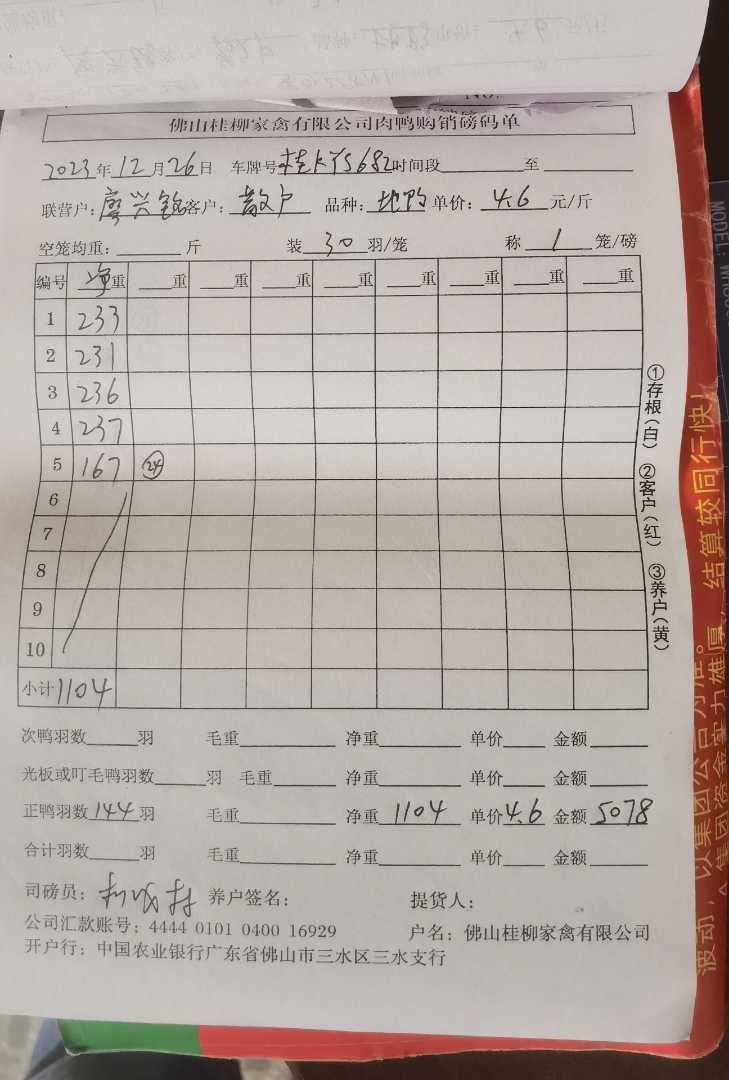 No.
佛山桂柳家禽有限公司肉鸭购销磅码单
2023年12月26日 车牌号 时间段 至
联营户: 客户:散户 品种: 单价:4.6元/斤
空笼均重: 斤 装30羽/笼 称1笼/磅
编号 净重 重 重 重 重 重 重 重 重
1 233
2 231
3 236
4 237
5 167 24
6
7
8
9
10
小计 1104
①存根(白) ②客户(红) ③养户(黄)
次鸭羽数 羽 毛重 净重 单价 金额
光板或叮毛鸭羽数 羽 毛重 净重 单价 金额
正鸭羽数144羽 毛重 净重1104 单价4.6 金额5078
合计羽数 羽 毛重 净重 单价 金额
司磅员: 养户签名: 提货人:
公司汇款账号: 4444 0101 0400 16929 户名: 佛山桂柳家禽有限公司
开户行: 中国农业银行广东省佛山市三水区三水支行
结算较同行快!
波动,以集团公告为准。
集团资金实力雄厚,
MODEL: